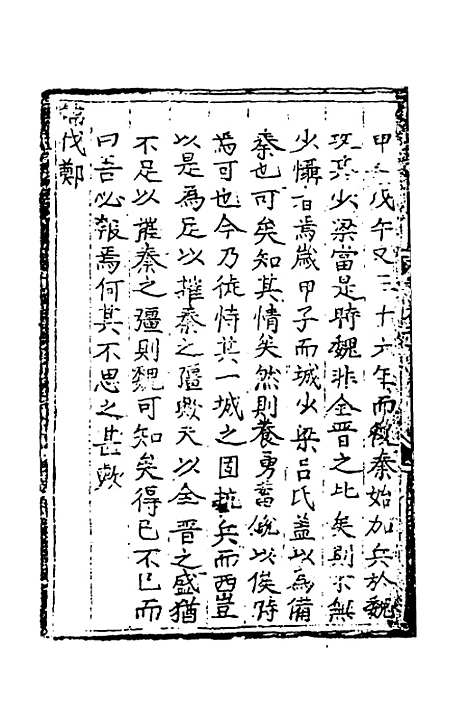 甲戊午又三十六年而後秦始加兵於魏
攻其少梁當是時魏非全晉之比矣則不無
少懾者焉歲甲子而城少梁呂氏蓋以為備
秦也可矣知其情矣然則養勇蓄銳以俟時
焉可也今乃徒恃其一城之固抗兵而西豈
以是為足以摧秦之彊歟夫以全晉之盛猶
不足以摧秦之彊則魏可知矣得已不已而
曰吾必報焉何其不思之甚歟
伐鄭